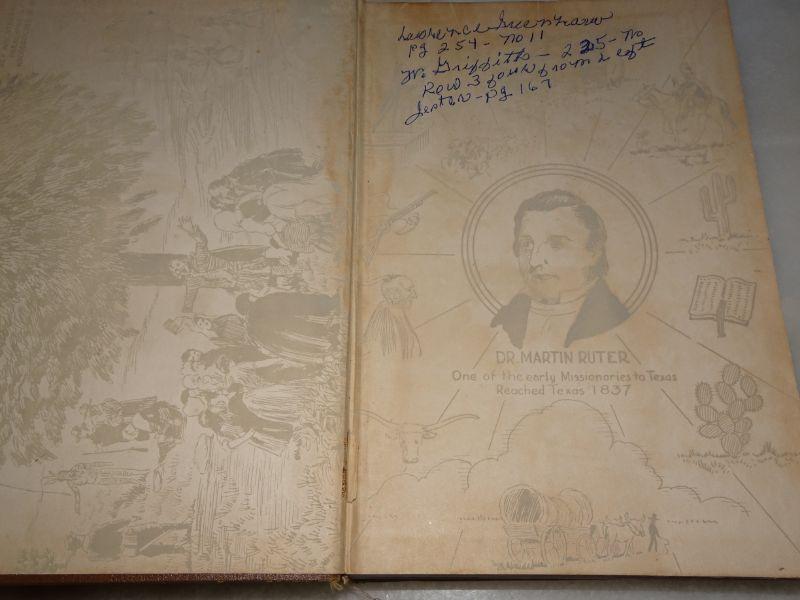 pg 254 - No 11
W. Griffith - 225 - No
Row 3 four from Left
Jester - pg 167
DR. MARTIN RUTER
One of the early Missionaries to Texas
Reached Texas 1837